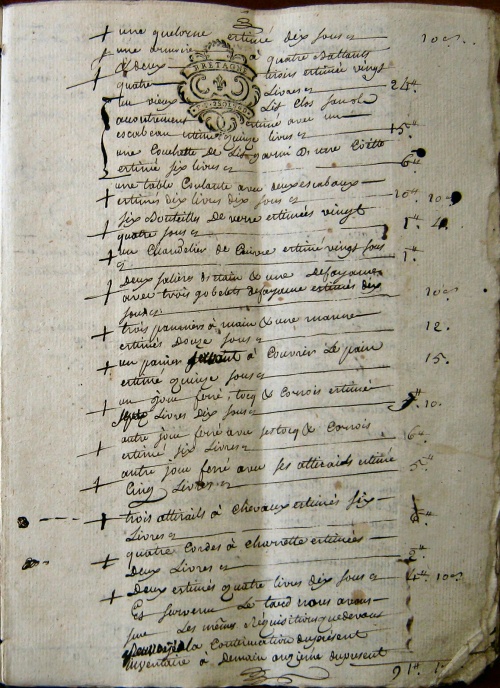 une estimé dix sous 10 s
une armoire à quatre Battants
& deux trois estimée vingt
quatre Livres 24 ₶
BRETAGNE
un vieux Lit Clos son
acoutrement estimé avec un
escabeau estimé quinze livres 15 ₶
une Couchette de Lit garni D'une Coëtte
estimé six livres 6 ₶
une table Coulante avec deux escabeaux
estimés dix livres dix sous 10 ₶ 10 s
six Bouteilles de verre estimées vingt
quatre sous 1 ₶ 4
un Chandelier de Cuivre estimé vingt sous 1 ₶
Deux salières & une Defayance
avec trois gobelets defayance estimés dix
sous 10 s
trois panniers à main & une manne
estimés Douze sous 12
un panier à Couvrir Le pain
estimé quinze sous 15
un joug ferré & Corrois estimé
Livres dix sous 10
autre joug ferré avec & Corrois
estimé six Livres 6 ₶
autre joug ferré avec ses attirails estimé
Cinq Livres 5 ₶
trois attirails à chevaux estimés six
Livres 6 ₶
quatre Cordes à Charrette estimées
Deux Livres 2 ₶
Deux estimés quatre livres dix sous 4 ₶ 10 s
Et survenu Le tard nous avons
Les mêmes Réquisitions que devant
la Continuation du présent
inventaire à Demain onzième du présent
91 ₶